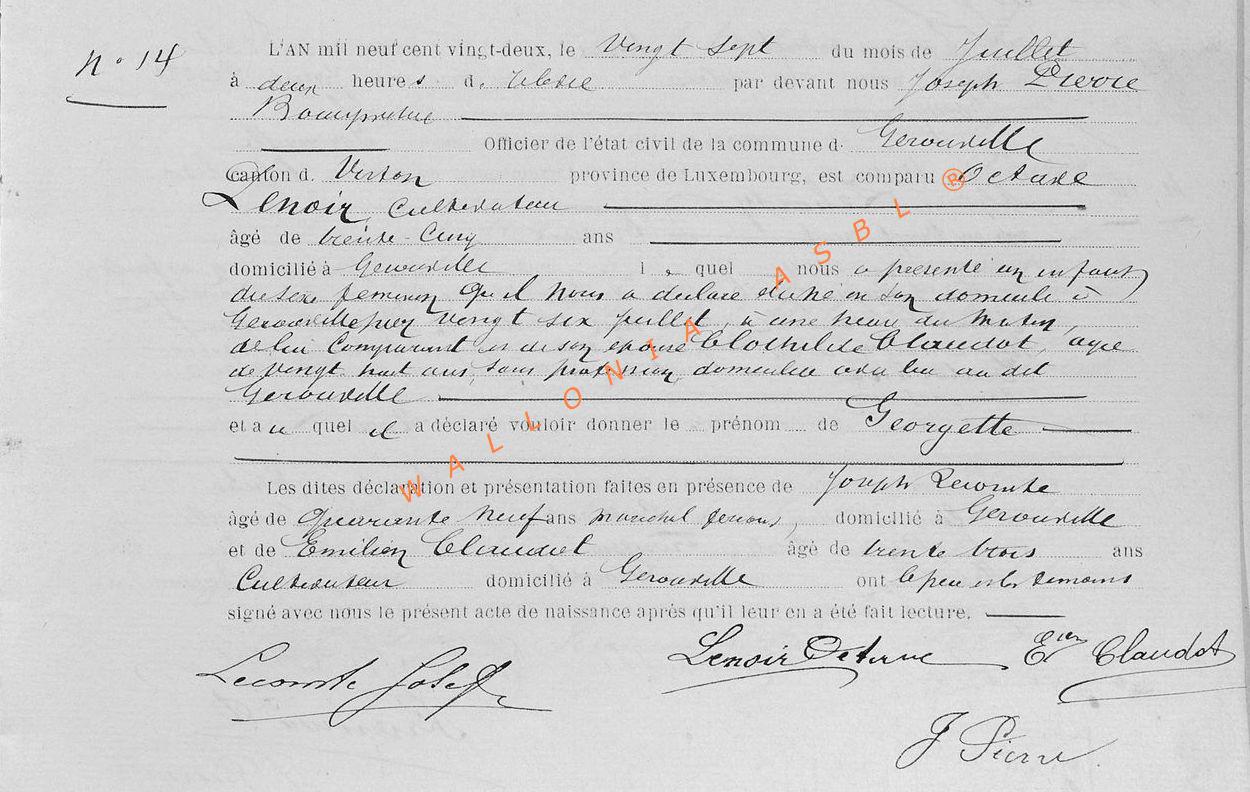 N° 14
L'AN mil neuf cent vingt-deux, le Vingt sept du mois de Juillet
à deux heures d. par devant nous Joseph Pierre
Bourgmestre
Officier de l'état civil de la commune d. Gérouville
canton d. Virton province de Luxembourg, est comparu Octave
Lenoir, Cultivateur
âgé de trente-Cinq ans
domicilié à Gerouville l e quel nous a présenté un enfant
du sexe féminin qu'il nous a déclaré être né en son domicile à
Gerouville hier vingt six Juillet, à une heure du matin,
de lui comparant et de son épouse Clothilde Claudot, agée
de vingt huit ans, sans profession, domiciliée avec lui au dit
Gerouville
et a u quel il a déclaré vouloir donner le prénom de Georgette
Les dites déclaration et présentation faites en présence de Joseph Lecomte
âgé de quarante neuf ans maréchal ferrant, domicilié à Gerouville
et de Emilien Claudot âgé de trente trois ans
Cultivateur domicilié à Gerouville ont le père et les témoins
signé avec nous le présent acte de naissance après qu'il leur en a été fait lecture.
Lecomte Joseph Lenoir Octave Eien Claudot
J Pierre
WALLONIA ASBL ®